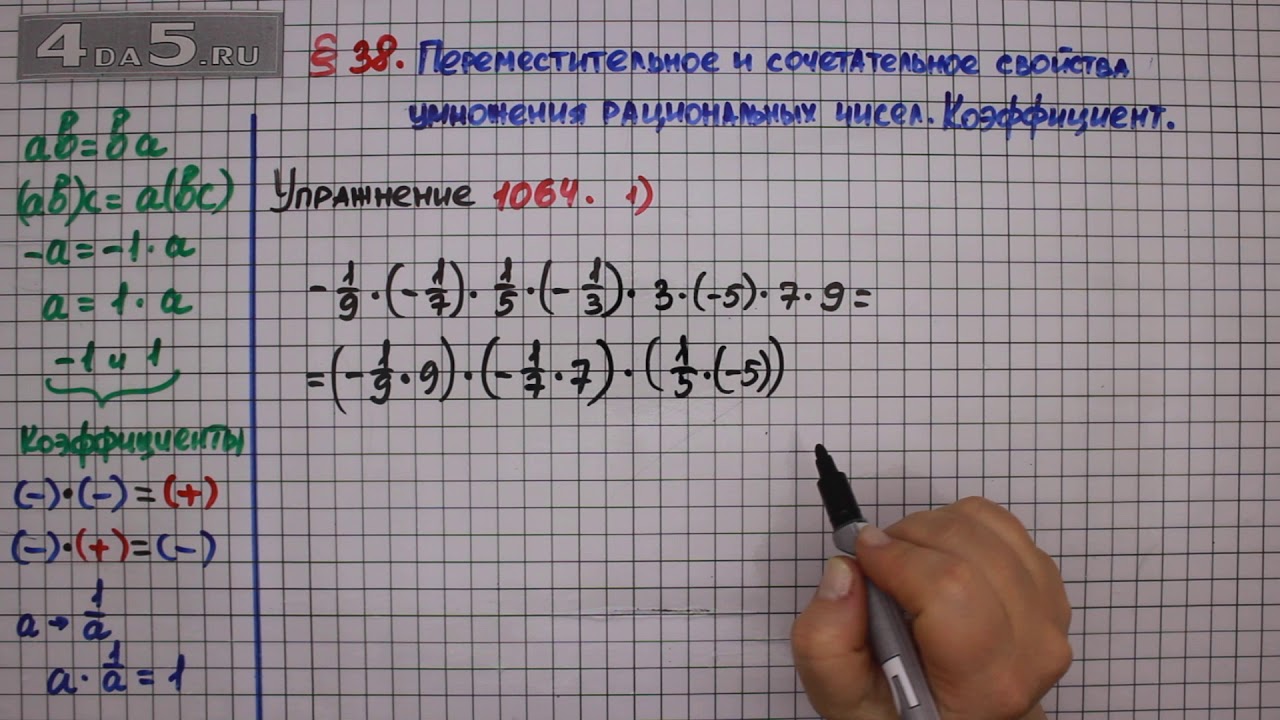 4DA5.RU
§ 38. Переместительное и сочетательное свойства
умножения рациональных чисел. Коэффициент.
ab=ba
(ab)c=a(bc)
-a=-1·a
a=1·a
-1 и 1
Коэффициенты
(-)·(-)=(+)
(-)·(+)=(-)
a→1/a
a·1/a=1
Упражнение 1064. 1)
-1/9·(-1/7)·1/5·(-1/3)·3·(-5)·7·9=
=(-1/9·9)·(-1/7·7)·(1/5·(-5))